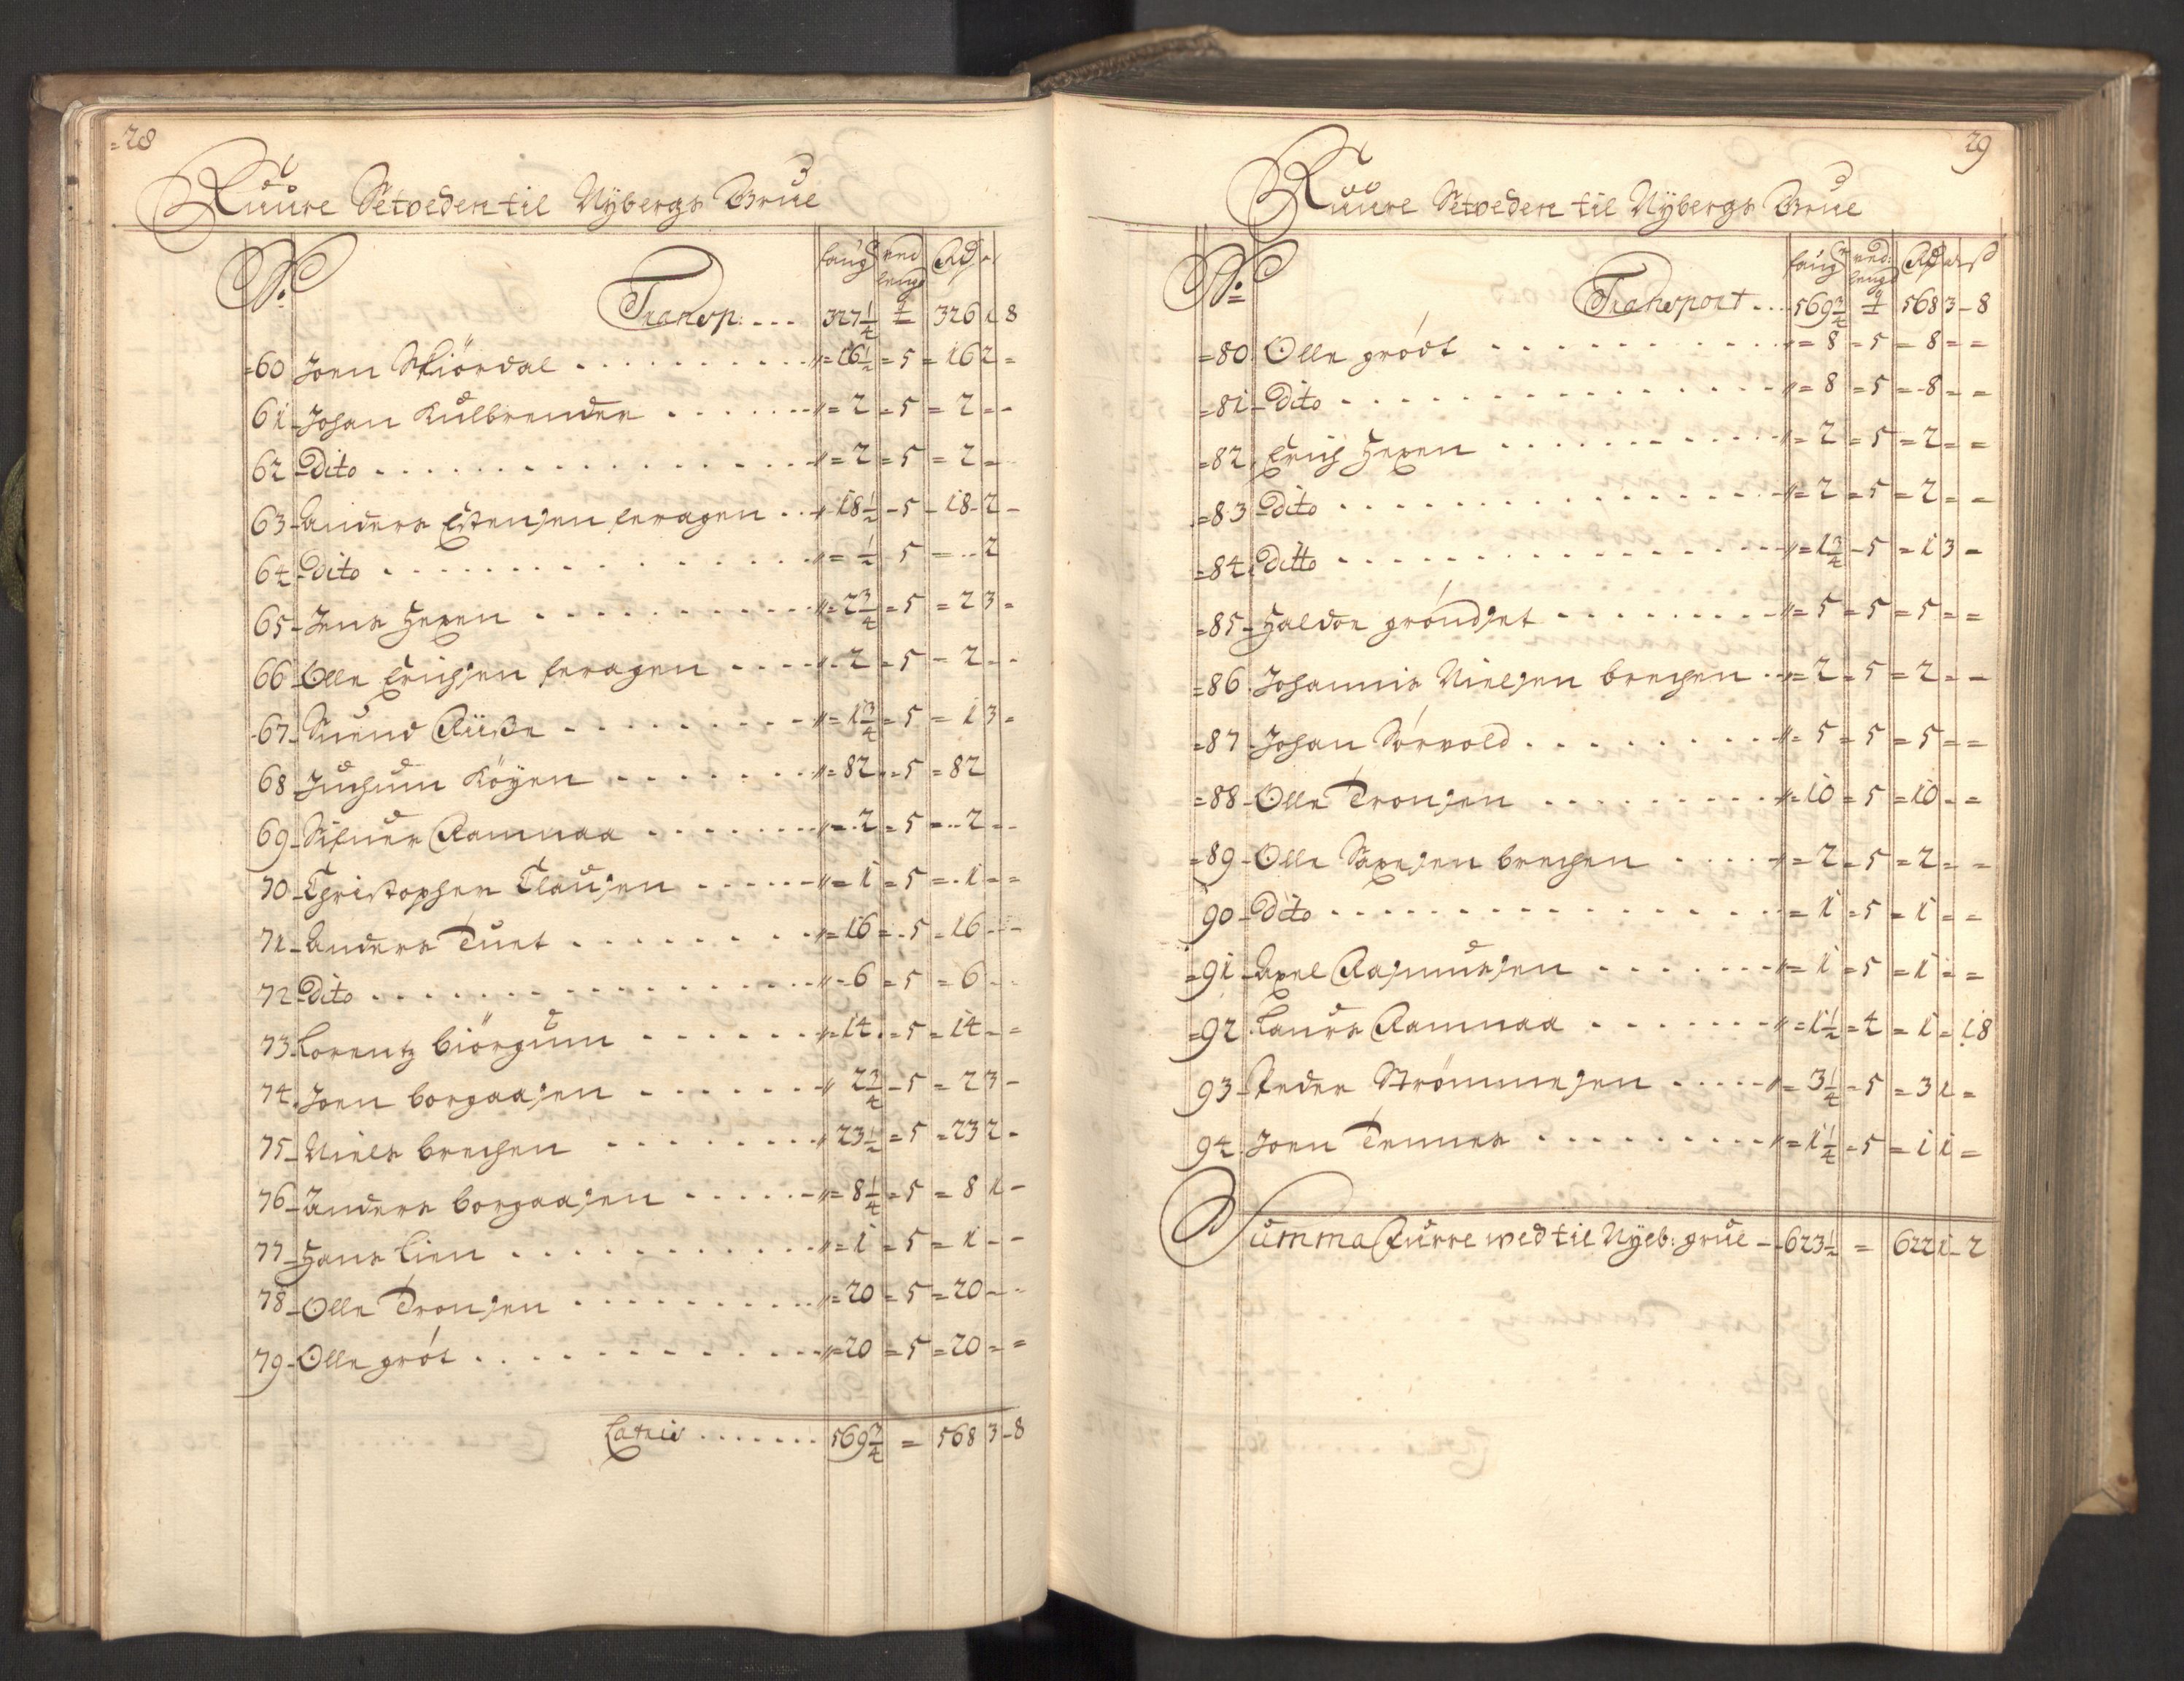 28
Ruure Setveden til Nybergs Grue
No. faug ved lengd Rd
Transp: . . . 327 1/4 326 1 8
60 Joen Stiördal . . . 16 1/2 = 5 = 16 2 =
61 Johan Kulbrender . . . = 2 = 5 = 2 = -
62 Dito . . . = 2 = 5 = 2 =
63 Anders Estensen feragen . . 18 1/2 - 5 - 18 - 2 -
64 Dito . . . = 1/2 5 = .. 2
65 Jens Hexen . . . = 2 3/4 = 5 = 2 3 =
66 Olle Erichsen feragen . . . - 2 = 5 = 2 - -
67 Suend Riiße . . . = 1 3/4 = 5 = 1 3 =
68 Juchum Köyen . . . = 82 . = 5 = 82
69 Sifuer Ramnaa . . . = 2 = 5 = .. 2 = -
70 Christopher Clausen . . . = 1 = 5 = . 1 = =
71 Anders Tuet . . . = 16 = . 5 - 16 - -
72 Dito . . . = 6 = 5 = 6 - -
73 Lorentz biörgum . . . = 14 . = 5 = 14 - =
74 Joen borgaasen . . . 2 3/4 - 5 = 2 3 -
75 Niels brechen . . . 23 1/2 = 5 = 23 2 -
76 Anders borgaasen . . . = 8 1/4 = 5 = 8 1 -
77 Hans Lien . . . = 1 = 5 = 1 - -
78 Olle Tronsen . . . = 20 = 5 = 20 - -
79 Olle gröt . . . = 20 = 5 = 20 = =
Latris . . . 569 3/4 = 568 3 - 8
29
Ruure Setveden til Nybergs Grue
No. faug ved: lengd Rd ß
Transport . . . 569 3/4 568 3 - 8
80 Olle grödt . . . = 8 = 5 = 8 = =
81 Dito . . . = 8 = 5 = 8 = =
82 Erich Hexen . . . = 2 = 5 = 2 = =
83 Dito . . . = 2 = 5 = 2 = =
84 Ditto . . . = 1 3/4 - 5 = 1 3 =
85 Haldor gröndset . . . = 5 = 5 = 5 = =
86 Johannis Nielsen brechen . . = 2 = 5 = 2 = -
87 Johan Sörvold . . . = 5 = 5 = 5 = =
88 Olle Tronsen . . . = 10 = 5 = 10 = =
89 Olle Saxesen brechen . . . = 2 = 5 = 2 = =
90 Dito . . . = 1 = 5 = 1 = =
91 Axel Rasmussen . . . = 1 = 5 = 1 = =
92 Laurs Ramnaa . . . = 1 1/2 = 4 = 1 = 18
93 Peder Strömmesen . . . = 3 1/4 = 5 = 3 1 =
94 Joen Temmes . . . = 1 1/4 = 5 = 1 1 =
Summa Ruure wed til Nyeb: grue - 623 1/2 = 622 1 - 2